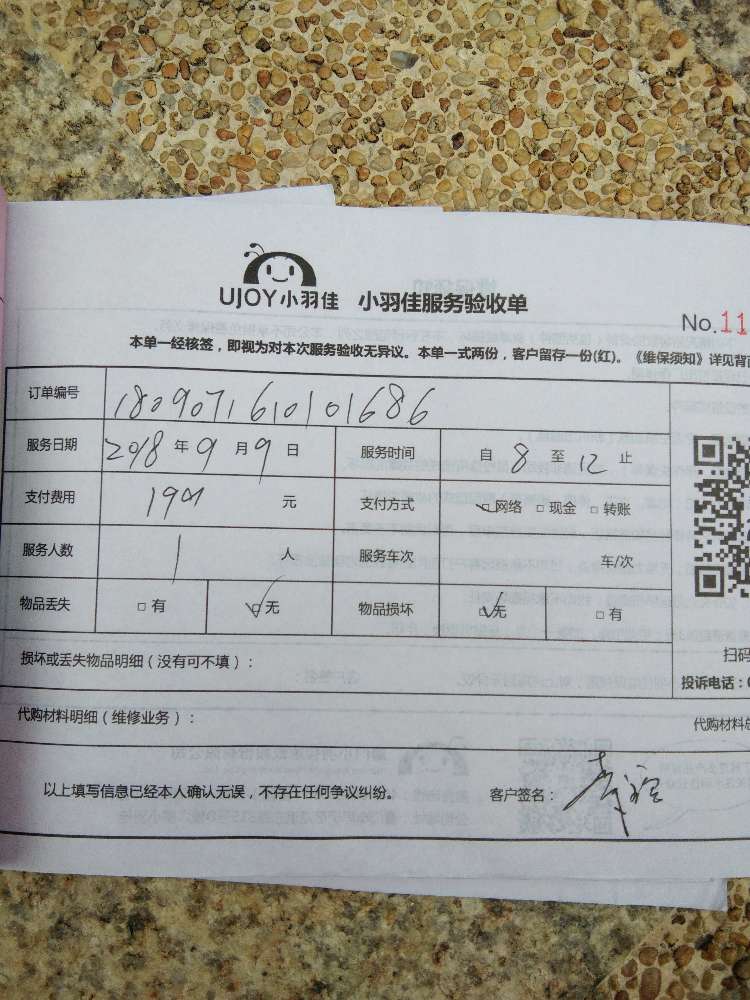 UJOY小羽佳 小羽佳服务验收单
No.11
本单一经核签，即视为对本次服务验收无异议。本单一式两份，客户留存一份(红)。《维保须知》详见背
订单编号 180907161010168​6
服务日期 2018 年 9 月 9 日 服务时间 自 8 至 12 止
支付费用 元 支付方式 网络 现金 转账
服务人数 1 人 服务车次 车/次
物品丢失 有 无 物品损坏 无 有
损坏或丢失物品明细（没有可不填）： 扫码
投诉电话：0
代购材料明细（维修业务）： 代购材料总
以上填写信息已经本人确认无误，不存在任何争议纠纷。 客户签名：